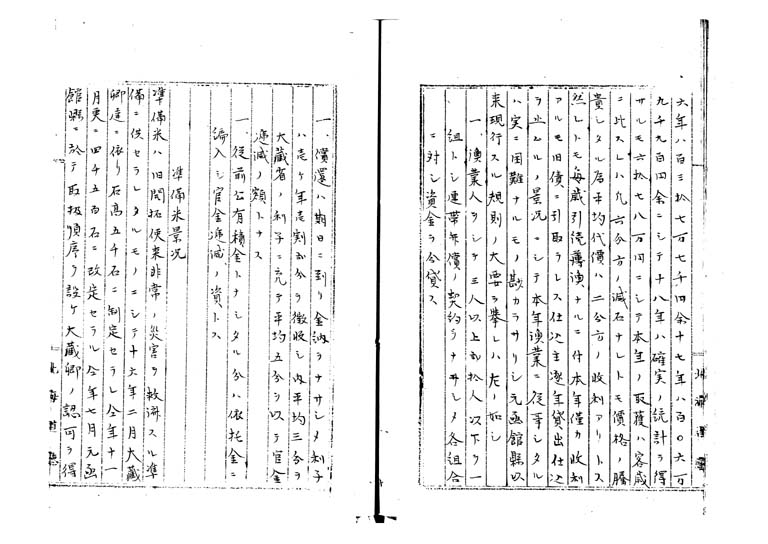 六年ハ百三拾七百七千四余十七年ハ百〇六百
九千九百四余ニシテ十八年ハ確実ノ統計ヲ得
サルモ六拾七八万円ニシテ本年ノ取獲ハ客歳
ニ比スレハ九六分方ノ減石ナレトモ価格ノ騰
貴シタル居平均代価ハ二分方ノ收利アリトス
然レトモ毎歳引続薄漁ナルニ付本年僅カ收利
アルモ旧債ニ引取ラレス仕込主逐年貸出仕込
ヲ止ムルノ景況ニシテ本年漁業ニ従事シタル
ハ実ニ困難ナルモノ尠カラサリシ元函館縣以
来現行スル規則ノ大要ヲ挙レハ左ノ如シ
一、漁業人ヲシテ三人以上五拾人以下ヲ一
組トシ連帯無償ノ契約ヲナサシメ各組合
ニ対シ資金ヲ分貸ス
一、償還ハ期日ニ到リ金納ヲナサシメ利子
ハ壱ケ年壱割五分ヲ徴收シ内平均三分ヲ
大蔵省ノ利子ニ充テ平均五分ヲ以テ官金
逓減ノ額トナス
一、従前公有積金トナシタル分ハ依托金ニ
編入シ官金逓減ノ資トス
準備米景況
準備米ハ旧開拓使来非常ノ災害ヲ救済スル準
備ニ供セラレタルモノニシテ十六年二月大蔵
卿達ニ依リ石高五千石ニ制定セラレ仝年十一
月更ニ四千五百石ニ改定セラル仝年七月元函
館縣ニ於テ取扱順序ヲ設ケ大蔵卿ノ認可ヲ得